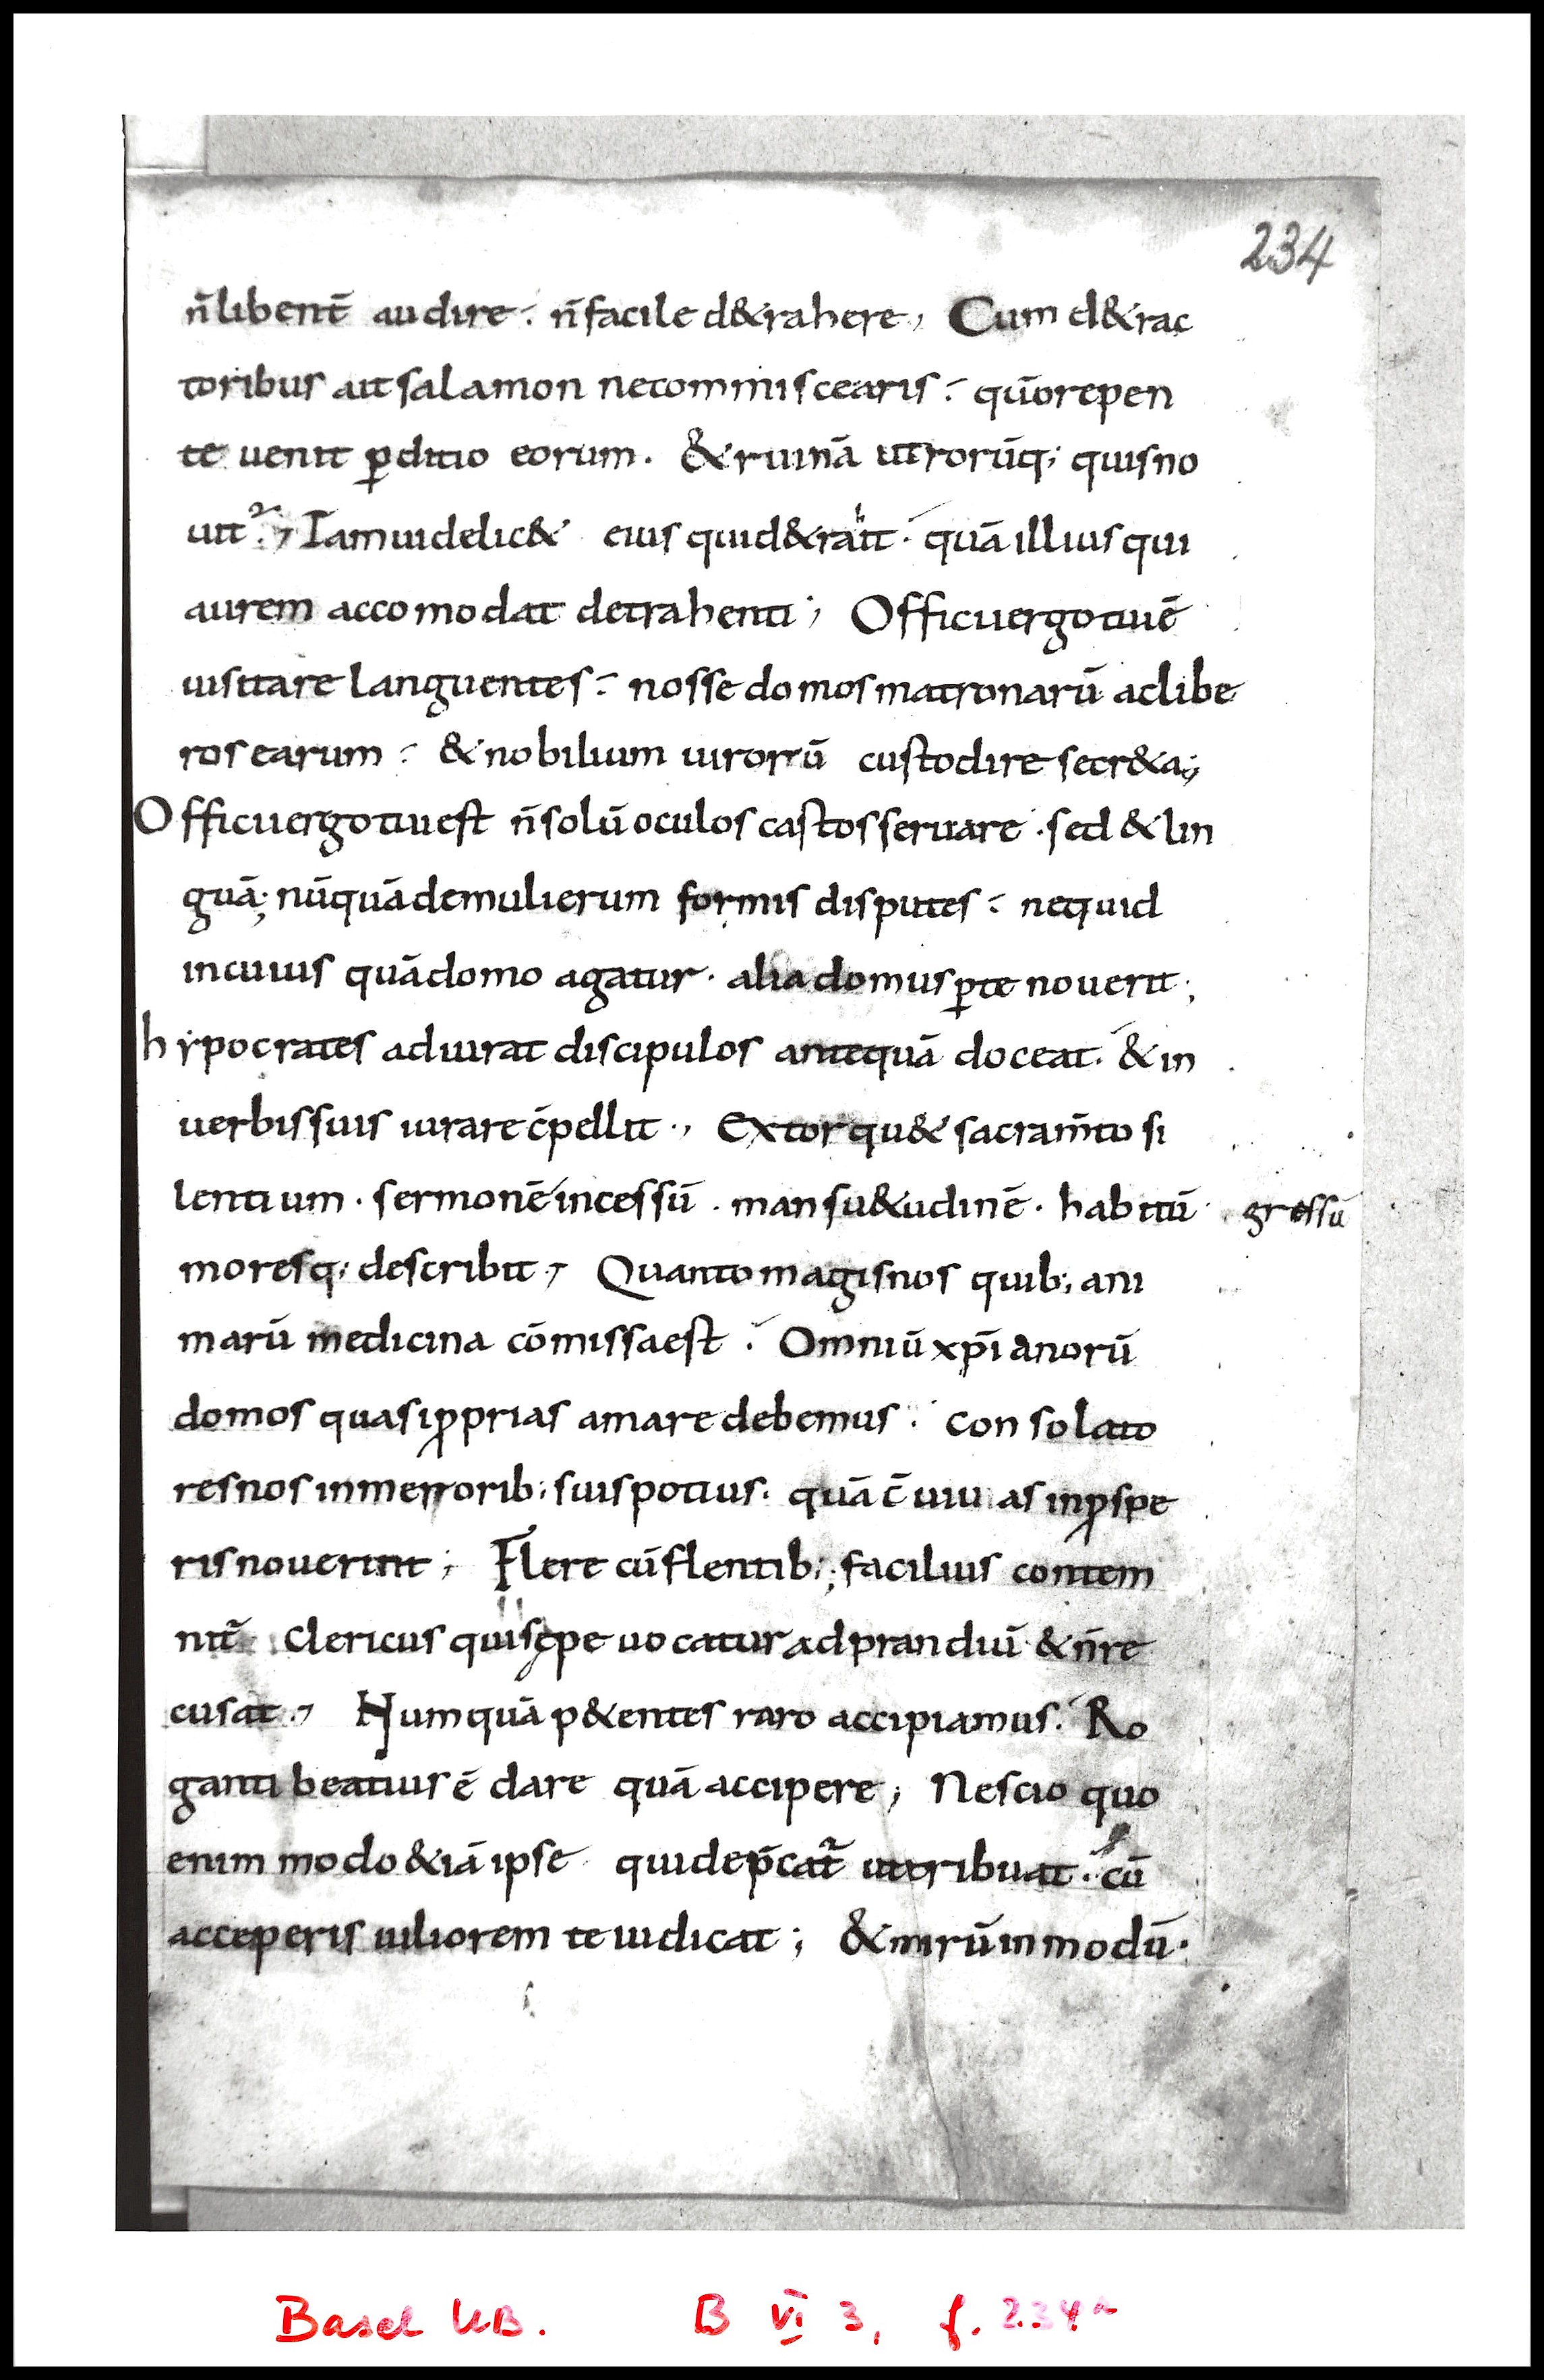 234
n̄ libent̄ audire· n̄ facile d&rahere, Cum d&rac
toribus ait salamon ne commiscearis· qūo repen
te uenit ꝑditio eorum. & ruinā utrorūq; quis no
uit; Iam uidelic& eius qui d&ra h it· quā illius qui
aurem accomodat detrahenti; Officii ergo tui ē
uisitare languentes· nosse domos matronarū ac libe
ros earum· & nobilium uirorū custodire secr&a;
Officii ergo tui est n̄ solū oculos castos seruare· sed & lin
guā; nūquā de mulierum formis disputes· ne quid
in cuius quā domo agatur· alia domus ꝑ te nouerit;
hypocrates adiurat discipulos antequā doceat· & in
uerbis suis iurare c̄pellit., Extorqu& sacram̄to si
lentium· sermonē incessū· mansu&udinē· habitū· gressū
moresq; describit, Quanto magis nos quib; ani
marū medicina cōmissa est· Omniū xp̄ianorū
domos quasi ꝓprias amare debemus· Consolato
res nos in merrorib; suis potius· quā c̄uiuas in ꝓspe
ris nouerint; Flere cū flentib; facilius contem
nit̄ clericus qui sepe uocatur ad prandiū & n̄ re
cusat., Numquā p&entes raro accipiamus· Ro
ganti beatius ē dare quā accipere, Nescio quo
enim modo &iā ipse qui dep̄cat̄ ut tribuat· cū
acceperis uiliorem te iudicat; & mirū in modū·
Basel UB. B VI 3, f. 234r